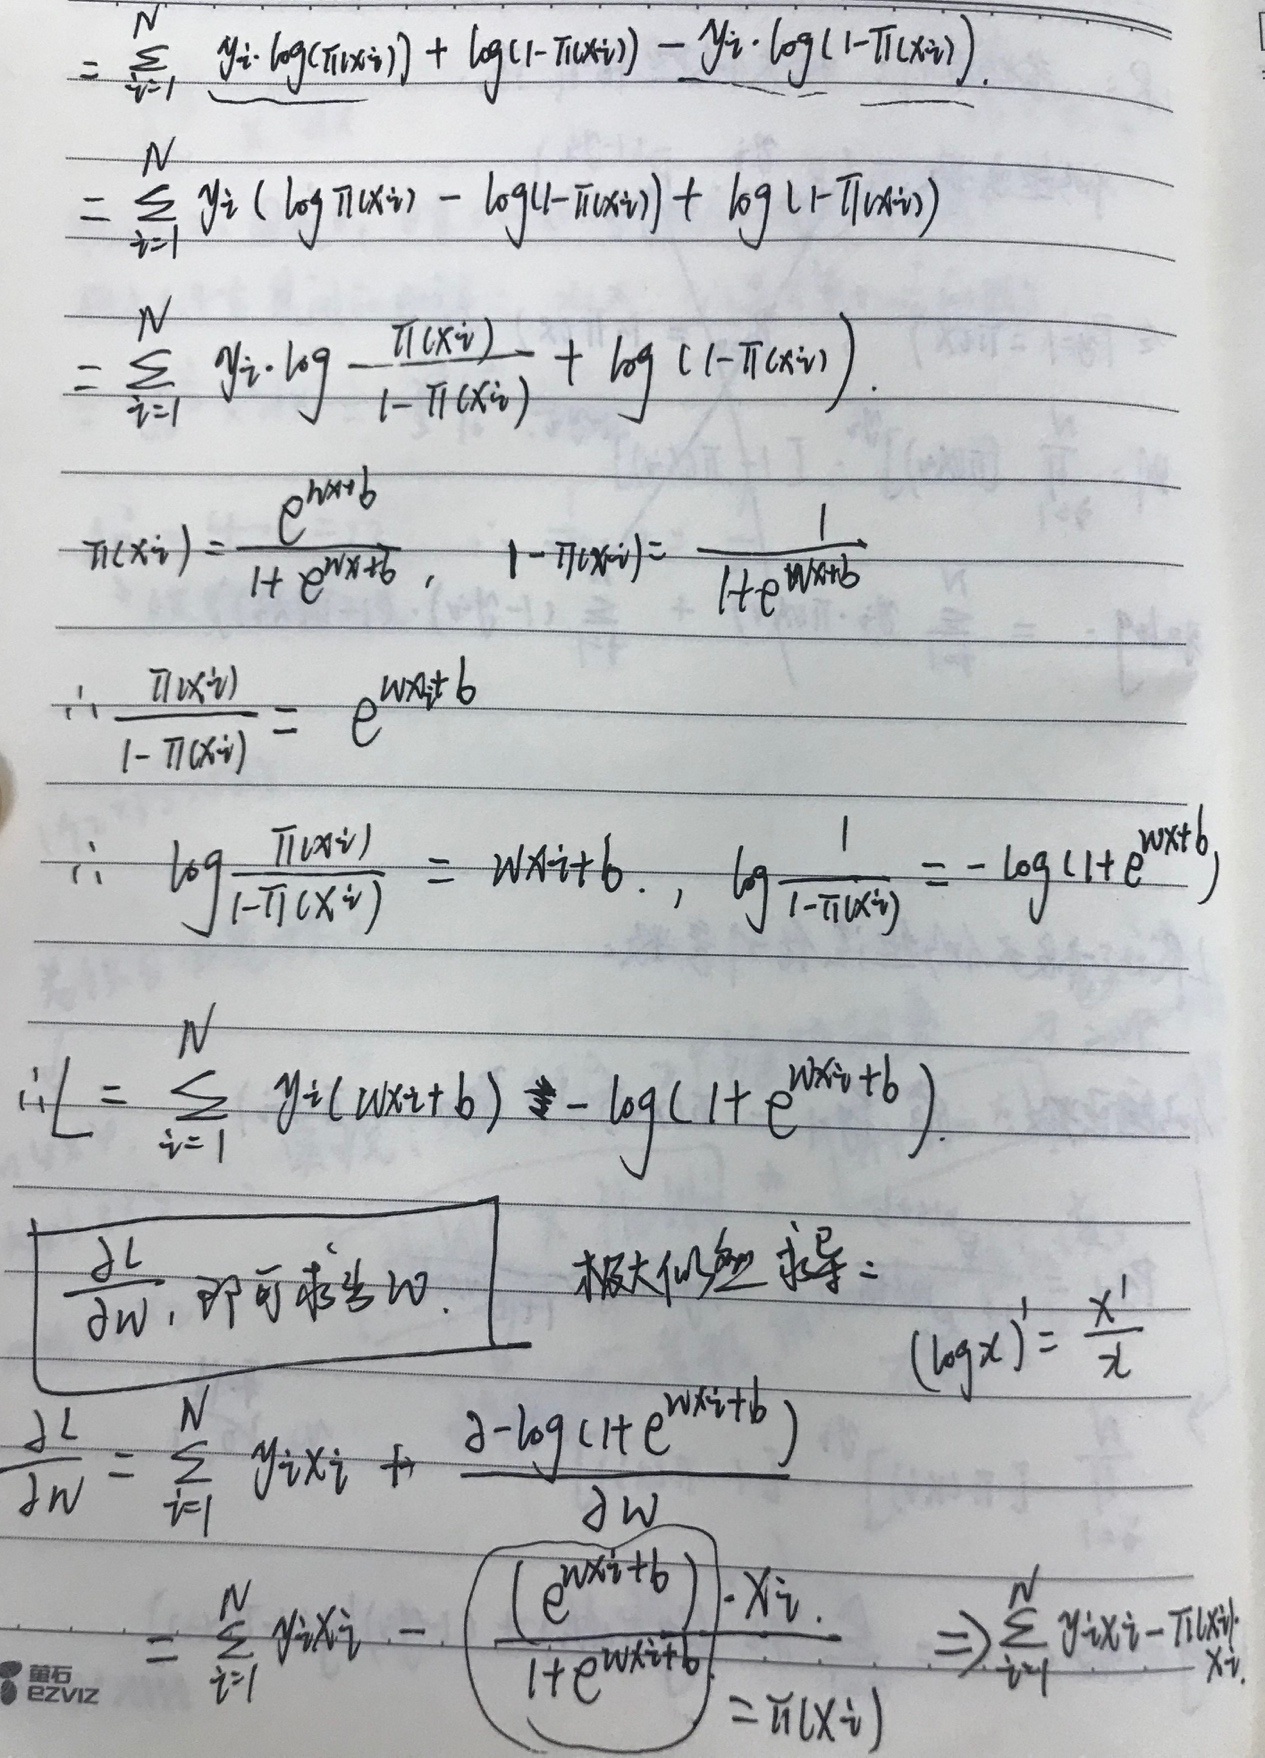 = Σ_{i=1}^{N} yi·log(π(xi)) + log(1-π(xi)) - yi·log(1-π(xi)).
= Σ_{i=1}^{N} yi (log π(xi) - log(1-π(xi)) + log(1-π(xi))
= Σ_{i=1}^{N} yi·log π(xi)/(1-π(xi)) + log(1-π(xi)).
π(xi) = e^{wx+b}/(1+e^{wx+b}), 1-π(xi) = 1/(1+e^{wx+b})
∴ π(xi)/(1-π(xi)) = e^{wxi+b}
∴ log π(xi)/(1-π(xi)) = wxi+b., log 1/(1-π(xi)) = -log(1+e^{wx+b})
∴ L = Σ_{i=1}^{N} yi(wxi+b) - log(1+e^{wxi+b}).
∂L/∂w, 即可求出w. 极大似然 求导:
(log x)' = x'/x
∂L/∂w = Σ_{i=1}^{N} yixi + ∂-log(1+e^{wxi+b})/∂w
= Σ_{i=1}^{N} yixi - (e^{wxi+b})·xi./(1+e^{wxi+b}) ⇒ Σ_{i=1}^{N} yixi - π(xi)·xi.
= π(xi)
萤石
EZVIZ